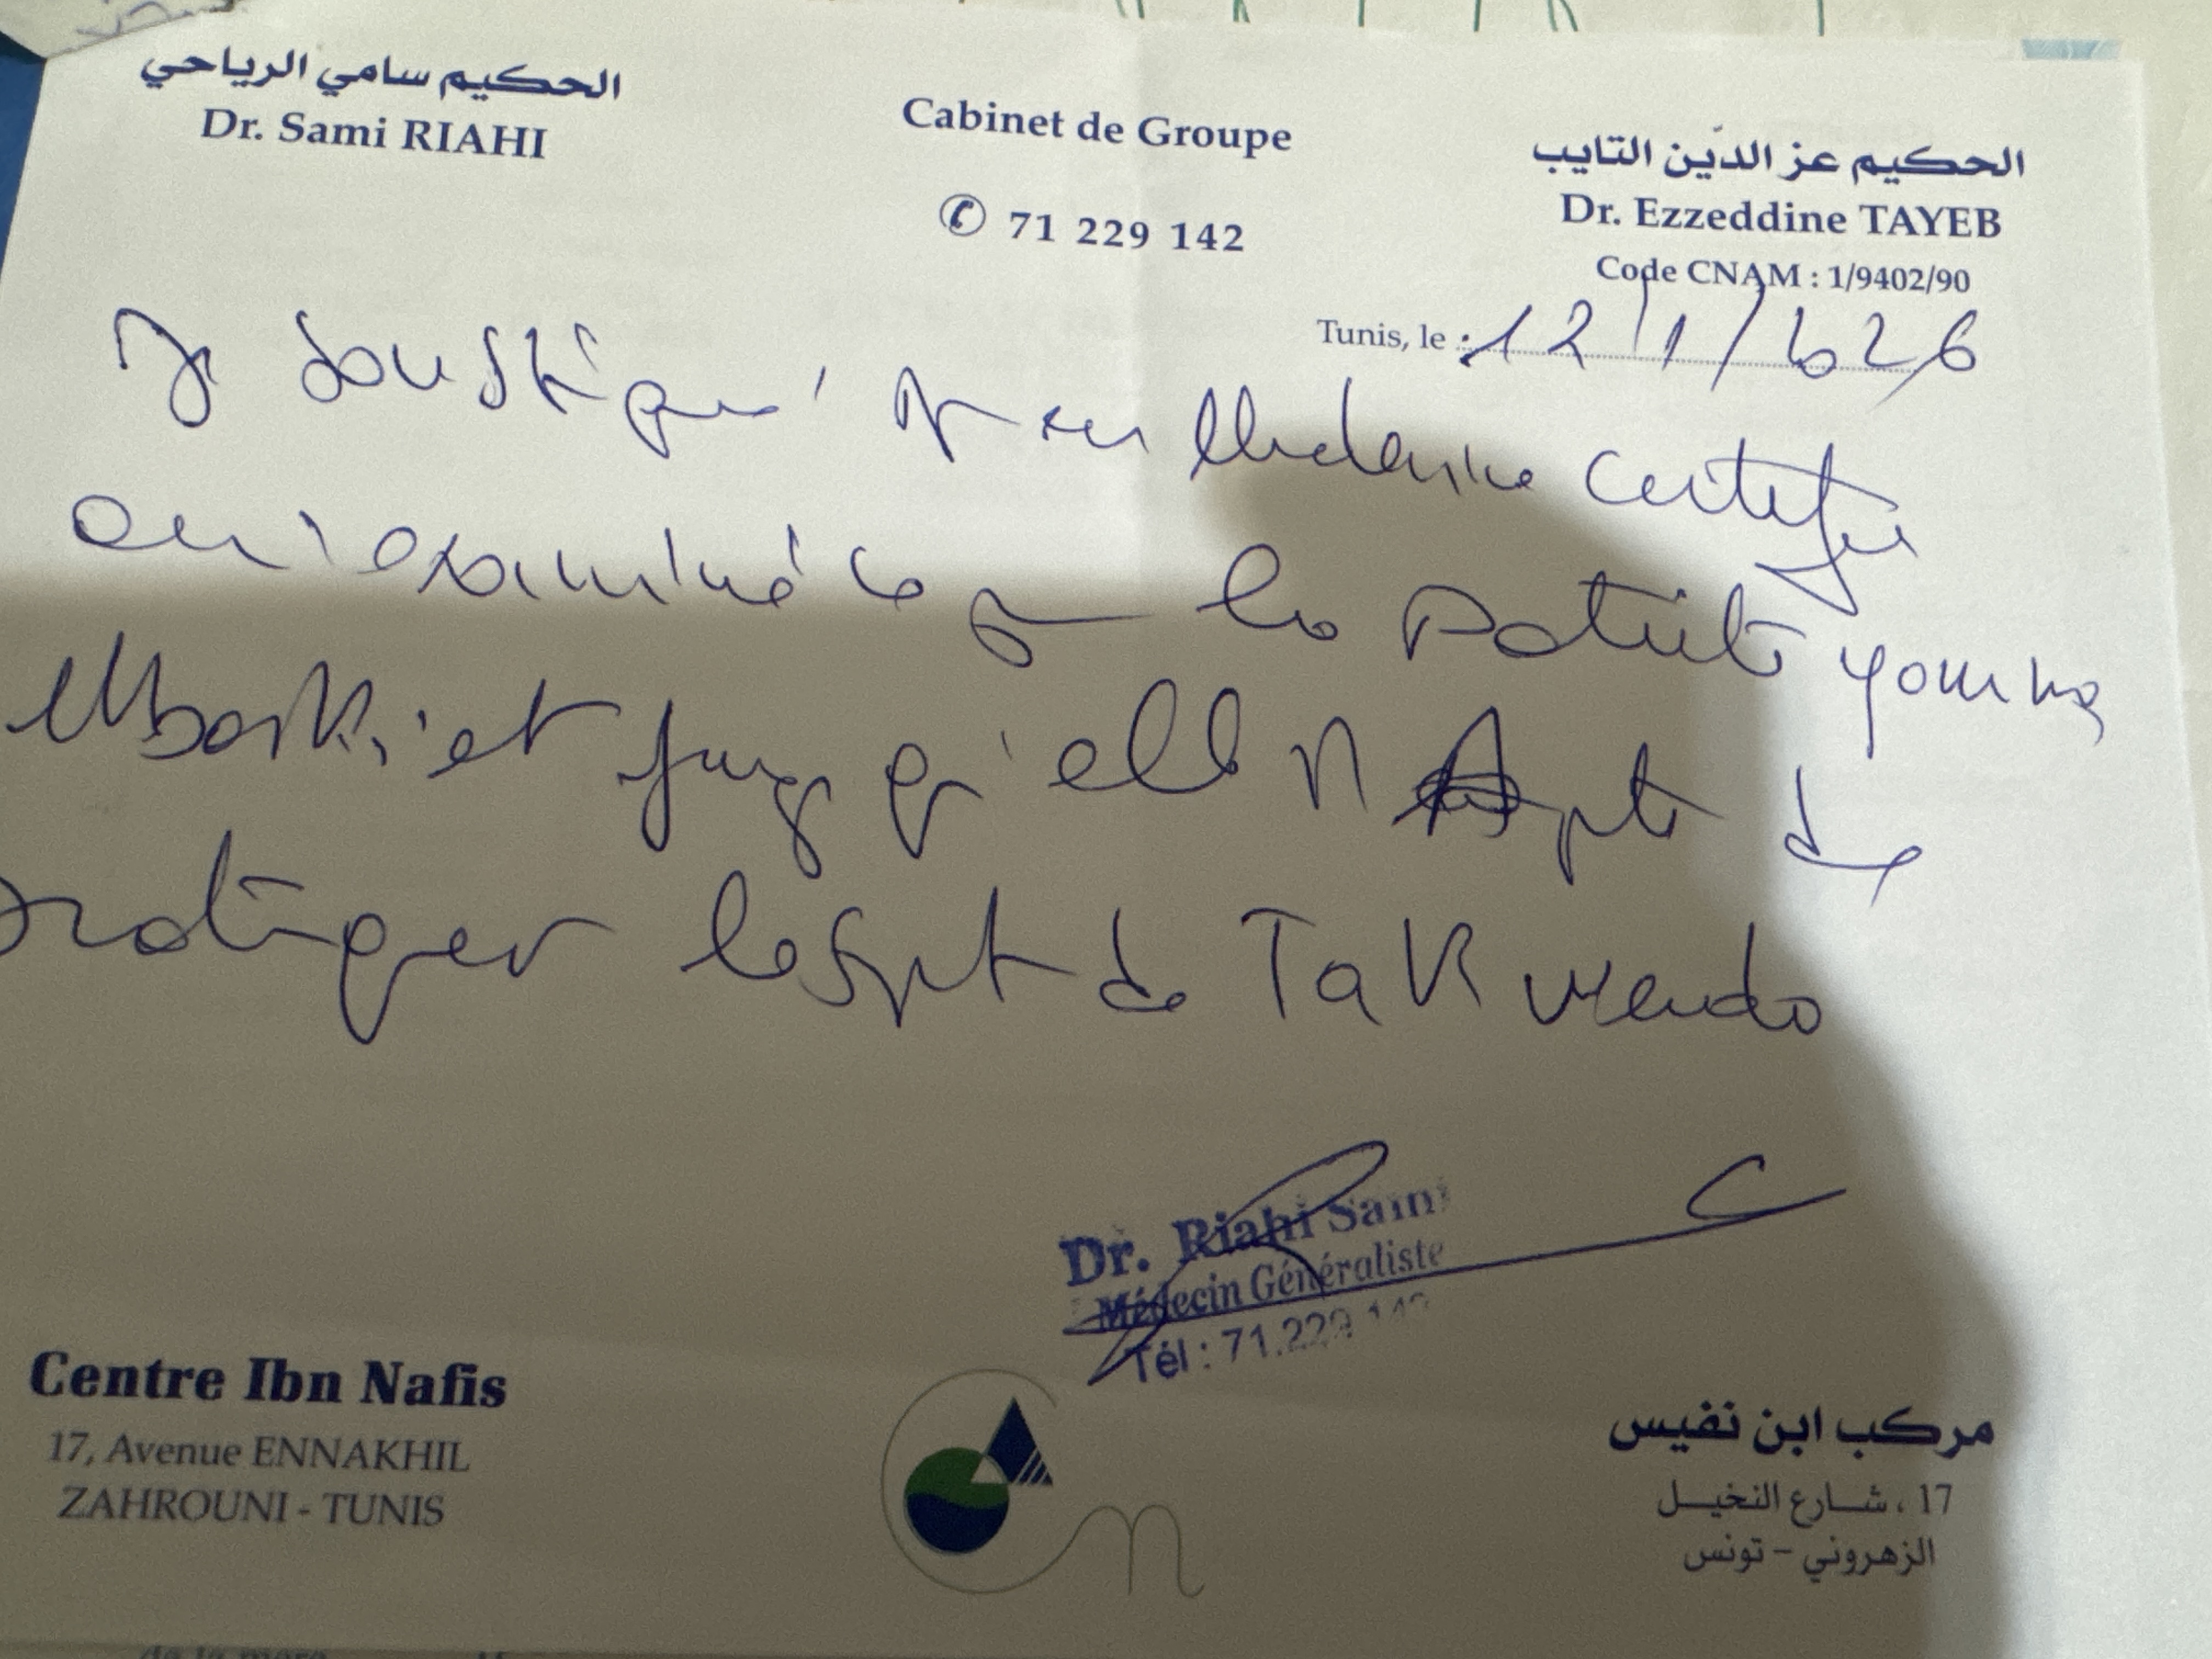 الحكيم سامي الرياحي
Dr. Sami RIAHI
Cabinet de Groupe
71 229 142
الحكيم عز الدين التايب
Dr. Ezzeddine TAYEB
Code CNAM : 1/9402/90
Tunis, le : 12/1/2026
Je soussigné Dr en Medecine certifie
examiné ce jr la patiente
et juge qu'elle Apte de
pratiquer le Sport de TaKwendo
Dr. Riahi Sami
Médecin Généraliste
Tél : 71.229 142
Centre Ibn Nafis
17, Avenue ENNAKHIL
ZAHROUNI - TUNIS
مركب ابن نفيس
17 ، شارع النخيل
الزهروني - تونس